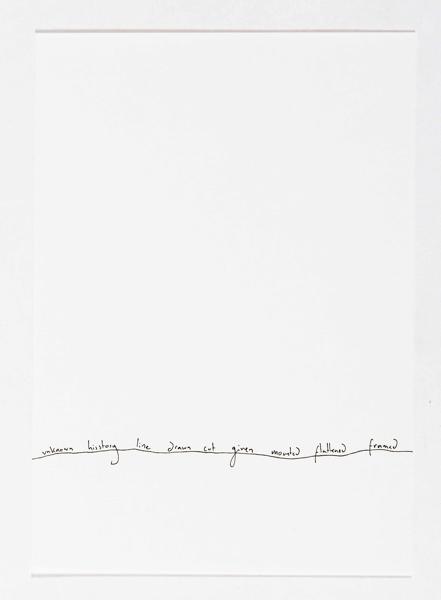 unknown hisstory line drawn cut given mounted flattened framed